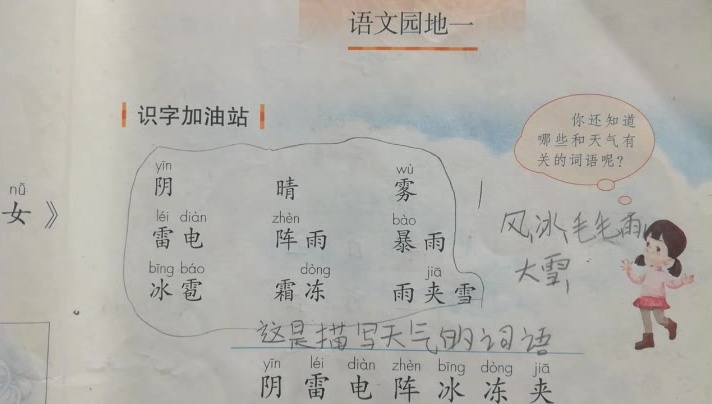 语文园地一
识字加油站
你还知道
哪些和天气有
关的词语呢？
yīn wù
阴 晴 雾
léi diàn zhèn bào
雷电 阵雨 暴雨
bīng báo dòng jiā
冰雹 霜冻 雨夹雪
nǚ
女》
风,冰,毛毛雨,
大雪,
这是描写天气的词语
yīn léi diàn zhèn bīng dòng jiā
阴 雷 电 阵 冰 冻 夹